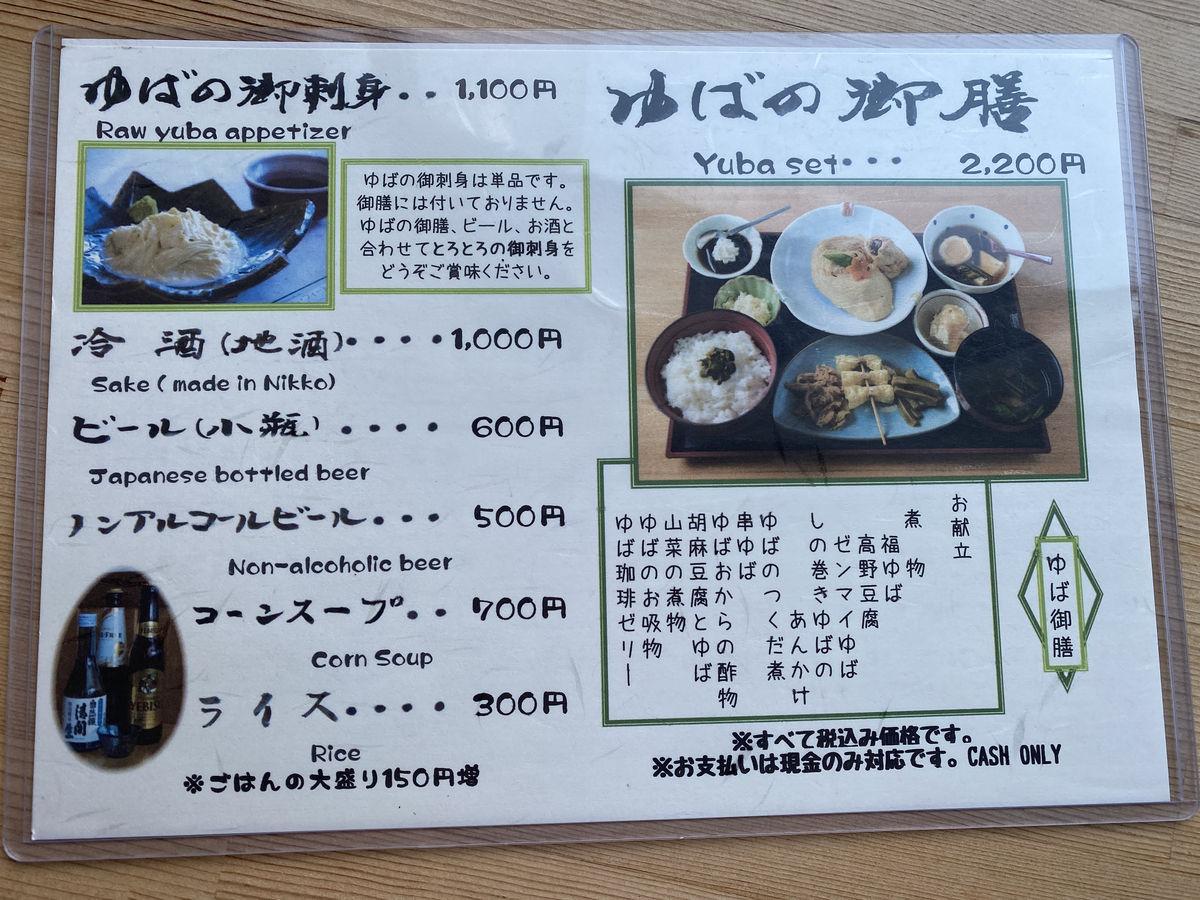 ゆばの御刺身・・1,100円
Raw yuba appetizer
ゆばの御刺身は単品です。
御膳には付いておりません。
ゆばの御膳、ビール、お酒と
合わせてとろとろの御刺身を
どうぞご賞味ください。
冷 酒(地酒)・・・・・1,000円
Sake ( made in Nikko)
ビール(小瓶)・・・・ 600円
Japanese bottled beer
ノンアルコールビール・・・ 500円
Non-alcoholic beer
コーンスープ・・ 700円
Corn Soup
ライス・・・・・ 300円
Rice
※ごはんの大盛り150円増
YEBISU
ゆばの御膳
Yuba set・・・ 2,200円
お献立
煮 物
福ゆば
高野豆腐
ゼンマイゆば
しの巻きゆばの
あんかけ
ゆばの つくだ煮
串ゆば
ゆばおからの酢物
胡麻豆腐とゆば
山菜の煮物
ゆばのお吸物
ゆば珈琲ゼリー
ゆば御膳
※すべて税込み価格です。
※お支払いは現金のみ対応です。CASH ONLY